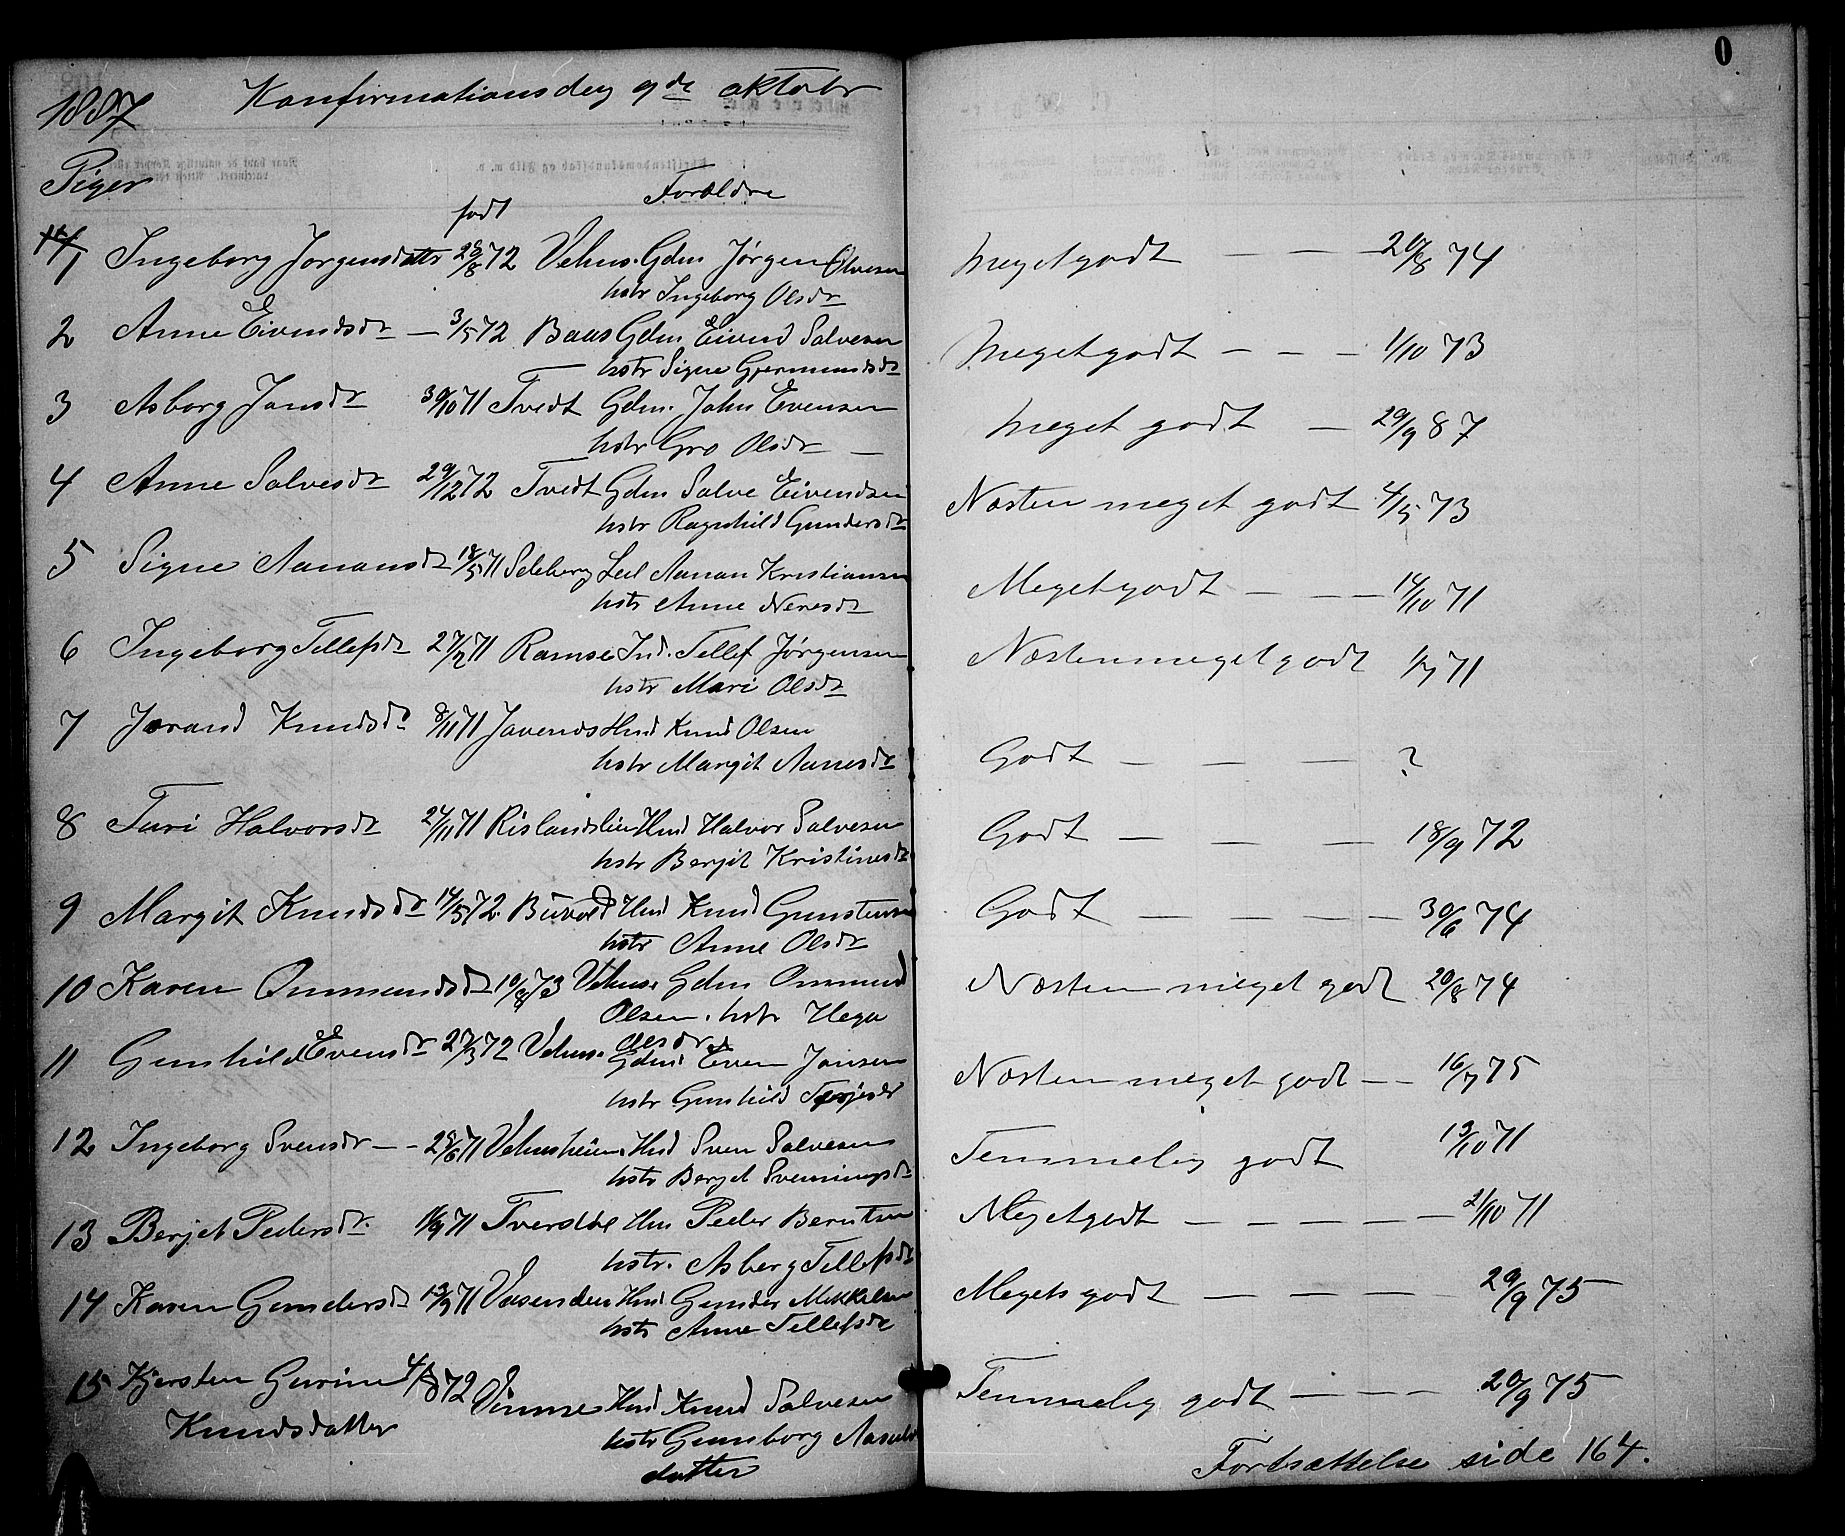 0
1887 Konfirmationsdag 9de oktober
Piger
født Forældre
1 Ingeborg Jørgensdattr 28/8 72 Vehus. Gdm Jørgen Olvesen Megetgodt — — — 20/8 74
hstr Ingeborg Olsdr
2 Anne Eivendsdr — 3/5 72 Baas Gdm Eivend Salvesen Megetgodt — — — 1/10 73
hstr Signe Gjermundsdr
3 Asborg Jonsdr 30/10 71 Tvedt Gdm. John Evensen Meget godt — 29/9 87
hstr Gro Olsdr —
4 Anne Salvesdr 29/12 72 Tvedt Gdm Salve Eivendsen Næsten meget godt 4/5 73
hstr Ragnhild Gundersdr
5 Signe Aanonsdr 18/5 71 Seleberg Leil Aanon Kristiansen Megetgodt — — — 14/10 71
hstr Anne Neresdr
6 Ingeborg Tellefsdr 27/12 71 Ramse Ind. Tellef Jørgensen Næstenmegetgodt 1/7 71
hstr Mari Olsdr
7 Jørand Knudsdr 8/11 71 Jovends Hmd Knud Olsen Godt — — — ?
hstr Margit Aanesdr
8 Turi Halvorsdr 24/11 71 Rislandslien Hmd Halvor Salvesen Godt — — — 18/9 72
hstr Berjit Kristinesdr
9 Margit Knudsdr 14/5 72. Buvold Hmd Knud Gunstensen Godt — — — — 30/6 74
hstr Anne Olsdr
10 Karen Ommundsdr 10/8 73 Vehus. Gdm Ommund Næsten meget godt 20/8 74
Olsen. hstr Hega
Olsdr
11 Gunhild Evensdr 27/3 72 Vehus. Gdmd Even Jonsen Næsten meget godt — — 16/7 75
hstr Gunhild Terjesdr
12 Ingeborg Svensdr — - 28/6 71 Vehusheien. Hmd Sven Salvesen Temmelig godt 13/10 71
hstr Berget Svenningsdr
13 Berjet Pedersdr. 16/9 71 Tverdal Hm Peder Berntsen Megetgodt — — — — — — 21/10 71
hstr. Asberg Tellefsdr
14 Karen Gundersdr 13/9 71 Vasenden Hmd Gunder Mikkelsen Megetsgodt — — — — 29/9 75
hstr Anne Tellefsdr
15 Kjersten Gurine 4/8 72 Vimme Hmd Knud Salvesen Temmelig godt — — — — 20/9 75
Knudsdatter hstr Gunborg Aasuls
datter
Fortsættelse side 164.